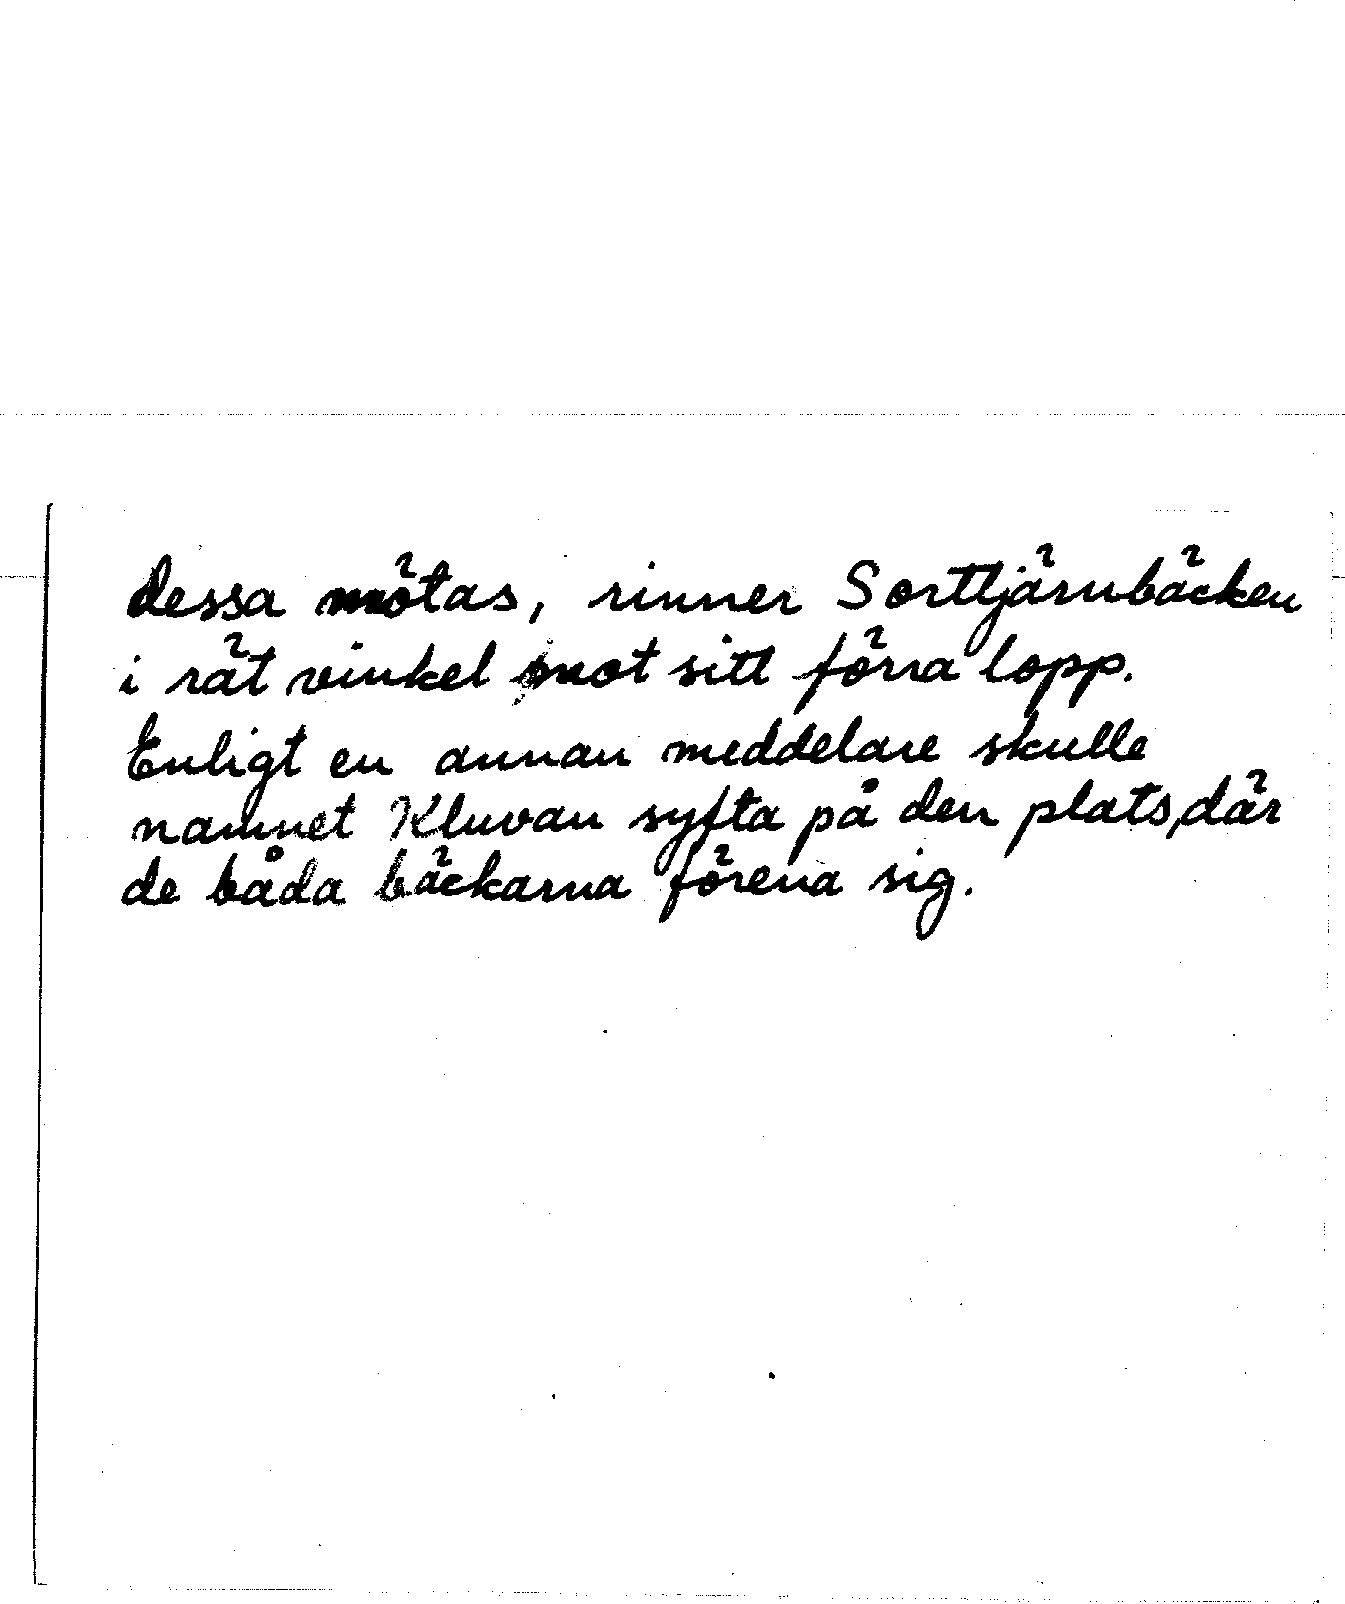 dessa mötas, rinner Sorttjärnbäcken
i rät vinkel mot sitt förra lopp.
Enligt en annan meddelare skulle
namnet Kluvan syfta på den plats, där
de båda bäckarna förena sig.